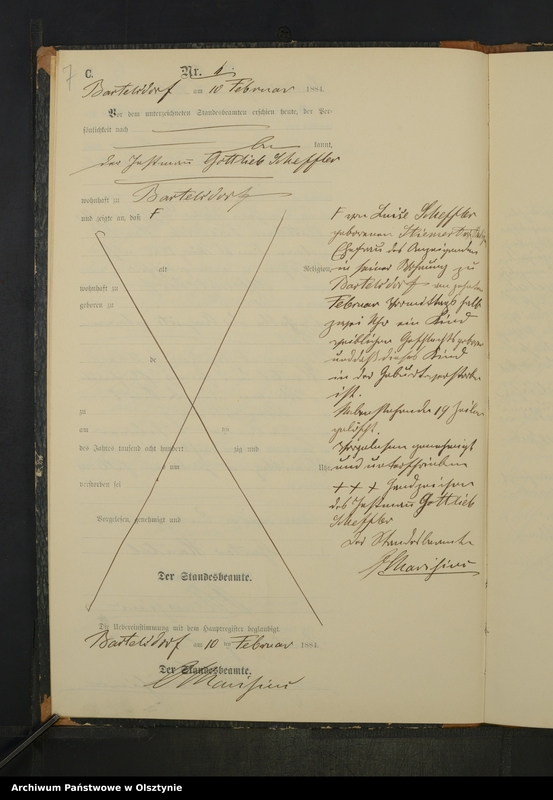 7
C.
Nr. 1.
Bartelsdorf am 10 Februar 1884.
Vor dem unterzeichneten Standesbeamten erschien heute, der Per-
sönlichkeit nach
kannt,
der Instmann Gottlieb Scheffler
wohnhaft zu Bartelsdorf
und zeigte an, daß F
alt Religion,
wohnhaft zu
geboren zu
de
zu
am
des Jahres tausend acht hundert zig und
um Uhr
verstorben sei
Vorgelesen, genehmigt und
Der Standesbeamte.
Die Uebereinstimmung mit dem Hauptregister beglaubigt.
Bartelsdorf am 10 ten Februar 1884.
Der Standesbeamte.
F von Luise Scheffler
geborenen
Ehefrau des Anzeigenden
in seiner Wohnung zu
Bartelsdorf am zehnten
Februar Vormittags halb
zwei Uhr ein Kind
weiblichen Geschlechts geboren
und daß dieses Kind
in der Geburt verstorben
ist.
Nebenstehende 19 Zeilen
gelöscht.
Vorgelesen genehmigt
und unterschrieben
+ + + Handzeichen
des Instmann Gottlieb
Scheffler
Der Standesbeamte
Archiwum Państwowe w Olsztynie